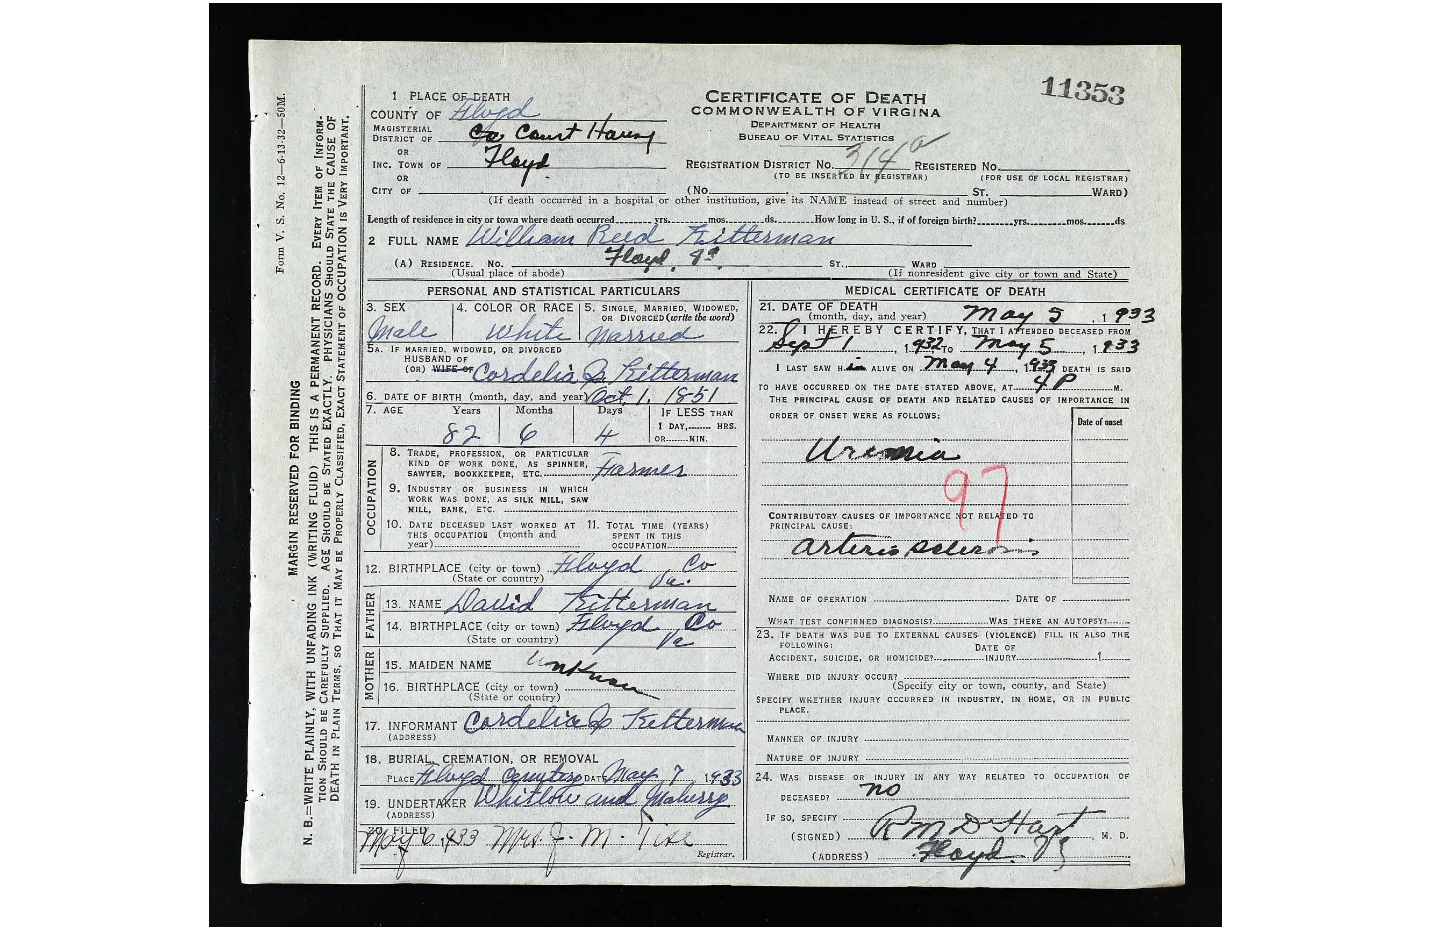 11353
1 PLACE OF DEATH
COUNTY OF Floyd
MAGISTERIAL DISTRICT OF Court House
OR
INC. TOWN OF Floyd
OR
CITY OF
CERTIFICATE OF DEATH
COMMONWEALTH OF VIRGINIA
DEPARTMENT OF HEALTH
BUREAU OF VITAL STATISTICS
REGISTRATION DISTRICT No. 314a REGISTERED No.
(TO BE INSERTED BY REGISTRAR) (FOR USE OF LOCAL REGISTRAR)
(No. ST. WARD)
(If death occurred in a hospital or other institution, give its NAME instead of street and number)
Length of residence in city or town where death occurred yrs. mos. ds. How long in U. S., if of foreign birth? yrs. mos. ds
2 FULL NAME William Reed Kitterman
(A) RESIDENCE. No. Floyd, Va. ST., WARD
(Usual place of abode) (If nonresident give city or town and State)
PERSONAL AND STATISTICAL PARTICULARS
3. SEX
Male
4. COLOR OR RACE
White
5. SINGLE, MARRIED, WIDOWED,
OR DIVORCED (write the word)
Married
5A. IF MARRIED, WIDOWED, OR DIVORCED
HUSBAND OF
(OR) WIFE OF Cordelia J. Kitterman
6. DATE OF BIRTH (month, day, and year) Oct 1, 1851
7. AGE Years Months Days IF LESS THAN
1 DAY, HRS.
82 6 4 OR MIN.
OCCUPATION
8. TRADE, PROFESSION, OR PARTICULAR
KIND OF WORK DONE, AS SPINNER,
SAWYER, BOOKKEEPER, ETC. Farmer
9. INDUSTRY OR BUSINESS IN WHICH
WORK WAS DONE, AS SILK MILL, SAW
MILL, BANK, ETC.
10. DATE DECEASED LAST WORKED AT
THIS OCCUPATION (month and
year)
11. TOTAL TIME (YEARS)
SPENT IN THIS
OCCUPATION
12. BIRTHPLACE (city or town) Floyd Co
(State or country) Va.
FATHER
13. NAME David Kitterman
14. BIRTHPLACE (city or town) Floyd Co
(State or country) Va
MOTHER
15. MAIDEN NAME Unknown
16. BIRTHPLACE (city or town)
(State or country)
17. INFORMANT Cordelia J Kitterman
(ADDRESS)
18. BURIAL, CREMATION, OR REMOVAL
PLACE Floyd Cemetery DATE May 7 1933
19. UNDERTAKER Whitlow and Maberry
(ADDRESS)
20. FILED May 6, 1933 Mrs. J. M. Tise
Registrar.
MEDICAL CERTIFICATE OF DEATH
21. DATE OF DEATH
(month, day, and year) May 5, 1933
22. I HEREBY CERTIFY, THAT I ATTENDED DECEASED FROM
Sept 1, 1932 TO May 5, 1933
I LAST SAW HIM ALIVE ON May 4, 1933 DEATH IS SAID
TO HAVE OCCURRED ON THE DATE STATED ABOVE, AT 4 P M.
THE PRINCIPAL CAUSE OF DEATH AND RELATED CAUSES OF IMPORTANCE IN
ORDER OF ONSET WERE AS FOLLOWS:
Date of onset
Uremia
97
CONTRIBUTORY CAUSES OF IMPORTANCE NOT RELATED TO
PRINCIPAL CAUSE:
Arterio sclerosis
NAME OF OPERATION DATE OF
WHAT TEST CONFIRMED DIAGNOSIS? WAS THERE AN AUTOPSY?
23. IF DEATH WAS DUE TO EXTERNAL CAUSES (VIOLENCE) FILL IN ALSO THE
FOLLOWING: DATE OF
ACCIDENT, SUICIDE, OR HOMICIDE? INJURY 1
WHERE DID INJURY OCCUR?
(Specify city or town, county, and State)
SPECIFY WHETHER INJURY OCCURRED IN INDUSTRY, IN HOME, OR IN PUBLIC
PLACE.
MANNER OF INJURY
NATURE OF INJURY
24. WAS DISEASE OR INJURY IN ANY WAY RELATED TO OCCUPATION OF
DECEASED? no
IF SO, SPECIFY
(SIGNED) R M DeHart M. D.
(ADDRESS) Floyd Va
Form V. S. No. 12—6-13-32—50M.
MARGIN RESERVED FOR BINDING
N. B.=WRITE PLAINLY, WITH UNFADING INK (WRITING FLUID) THIS IS A PERMANENT RECORD. EVERY ITEM OF INFORM-
TION SHOULD BE CAREFULLY SUPPLIED. AGE SHOULD BE STATED EXACTLY. PHYSICIANS SHOULD STATE THE CAUSE OF
DEATH IN PLAIN TERMS, SO THAT IT MAY BE PROPERLY CLASSIFIED, EXACT STATEMENT OF OCCUPATION IS VERY IMPORTANT.